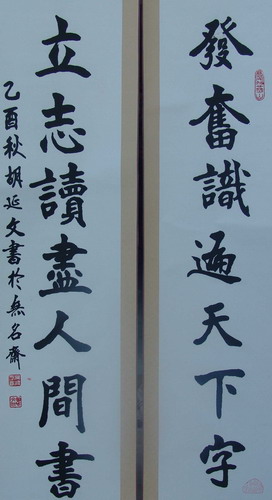 發奮識遍天下字
立志讀盡人間書
乙酉秋胡延文書於無名齋